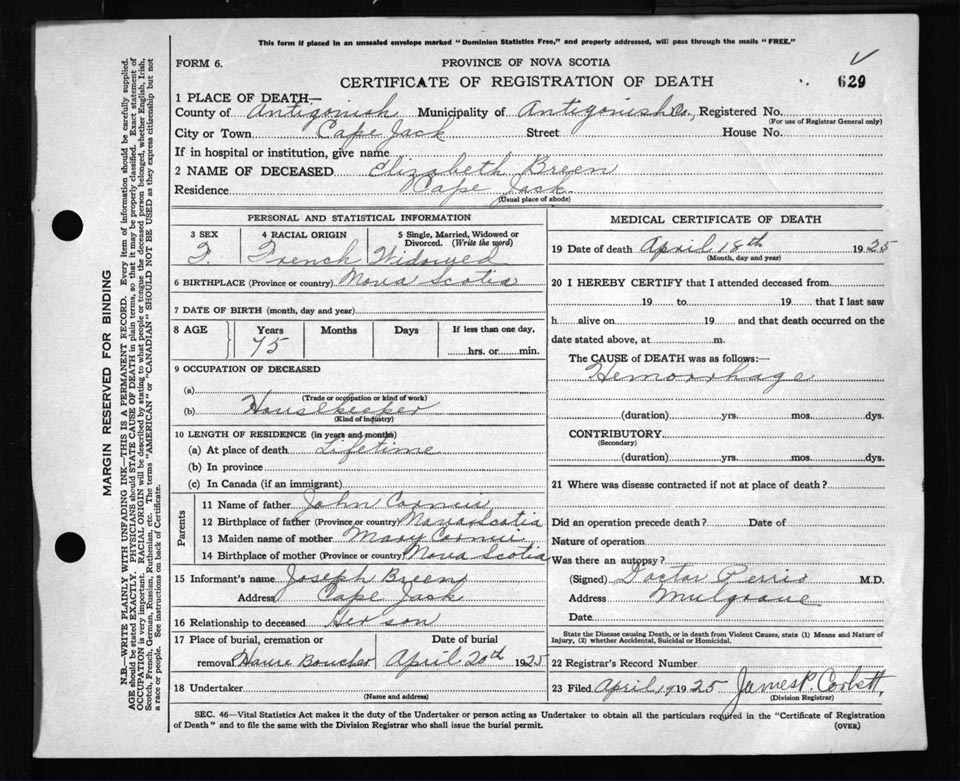 This form if placed in an unsealed envelope marked "Dominion Statistics Free," and properly addressed, will pass through the mails "FREE."
FORM 6.
PROVINCE OF NOVA SCOTIA
CERTIFICATE OF REGISTRATION OF DEATH
629
1 PLACE OF DEATH—
County of Antigonish Municipality of Antigonish Co., Registered No.
(For use of Registrar General only)
City or Town Cape Jack Street House No.
If in hospital or institution, give name
2 NAME OF DECEASED Elizabeth Breen
Residence Cape Jack
(Usual place of abode)
PERSONAL AND STATISTICAL INFORMATION
3 SEX 4 RACIAL ORIGIN 5 Single, Married, Widowed or Divorced. (Write the word)
F. French Widowed
6 BIRTHPLACE (Province or country) Nova Scotia
7 DATE OF BIRTH (month, day and year)
8 AGE Years Months Days If less than one day,
75 hrs. or min.
9 OCCUPATION OF DECEASED
(a)
(Trade or occupation or kind of work)
(b) Housekeeper
(Kind of industry)
10 LENGTH OF RESIDENCE (in years and months)
(a) At place of death Lifetime
(b) In province
(c) In Canada (if an immigrant)
Parents
11 Name of father John
12 Birthplace of father (Province or country) Nova Scotia
13 Maiden name of mother Mary
14 Birthplace of mother (Province or country) Nova Scotia
15 Informant's name Joseph Breen
Address Cape Jack
16 Relationship to deceased Her son
17 Place of burial, cremation or Date of burial
removal Havre Boucher April 20th 1925
18 Undertaker
(Name and address)
MEDICAL CERTIFICATE OF DEATH
19 Date of death April 18th 1925
(Month, day and year)
20 I HEREBY CERTIFY that I attended deceased from
19 to 19 that I last saw
h alive on 19 and that death occurred on the
date stated above, at m.
The CAUSE of DEATH was as follows:—
Hemorrhage
(duration) yrs. mos. dys.
CONTRIBUTORY
(Secondary)
(duration) yrs. mos. dys.
21 Where was disease contracted if not at place of death?
Did an operation precede death? Date of
Nature of operation
Was there an autopsy?
(Signed) Doctor Perrio M.D.
Address Mulgrave
Date
State the Disease causing Death, or in death from Violent Causes, state (1) Means and Nature of
Injury, (2) whether Accidental, Suicidal or Homicidal.
22 Registrar's Record Number
23 Filed April 19 1925 James P. Corbett,
(Division Registrar)
SEC. 46—Vital Statistics Act makes it the duty of the Undertaker or person acting as Undertaker to obtain all the particulars required in the "Certificate of Registration
of Death" and to file the same with the Division Registrar who shall issue the burial permit.
(OVER)
MARGIN RESERVED FOR BINDING
N.B.—WRITE PLAINLY WITH UNFADING INK—THIS IS A PERMANENT RECORD. Every item of information should be carefully supplied.
AGE should be stated EXACTLY. PHYSICIANS should STATE CAUSE OF DEATH in plain terms, so that it may be properly classified. Exact statement of
OCCUPATION is very important. RACIAL ORIGIN will be described by stating to what people or tongue the deceased person belonged, whether English, Irish,
Scotch, French, German, Russian, Ruthenian, etc. The terms "AMERICAN" or "CANADIAN" SHOULD NOT BE USED as they express citizenship but not
a race or people. See instructions on back of Certificate.